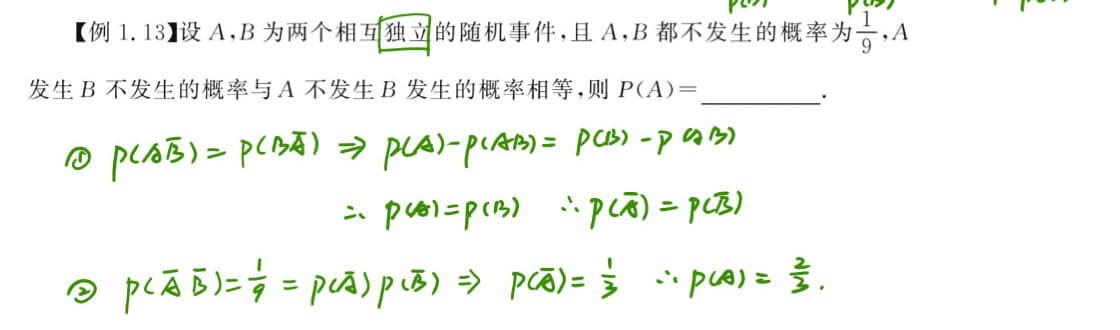 【例 1.13】设 A,B 为两个相互独立的随机事件,且 A,B 都不发生的概率为1/9,A
发生 B 不发生的概率与 A 不发生 B 发生的概率相等,则 P(A)=________.
① P(AB̄)=P(BĀ) ⇒ P(A)-P(AB)= P(B)-P(AB)
∴ P(A)=P(B) ∴ P(Ā)=P(B̄)
② P(Ā B̄)=1/9=P(Ā)P(B̄) ⇒ P(Ā)=1/3 ∴ P(A)=2/3.